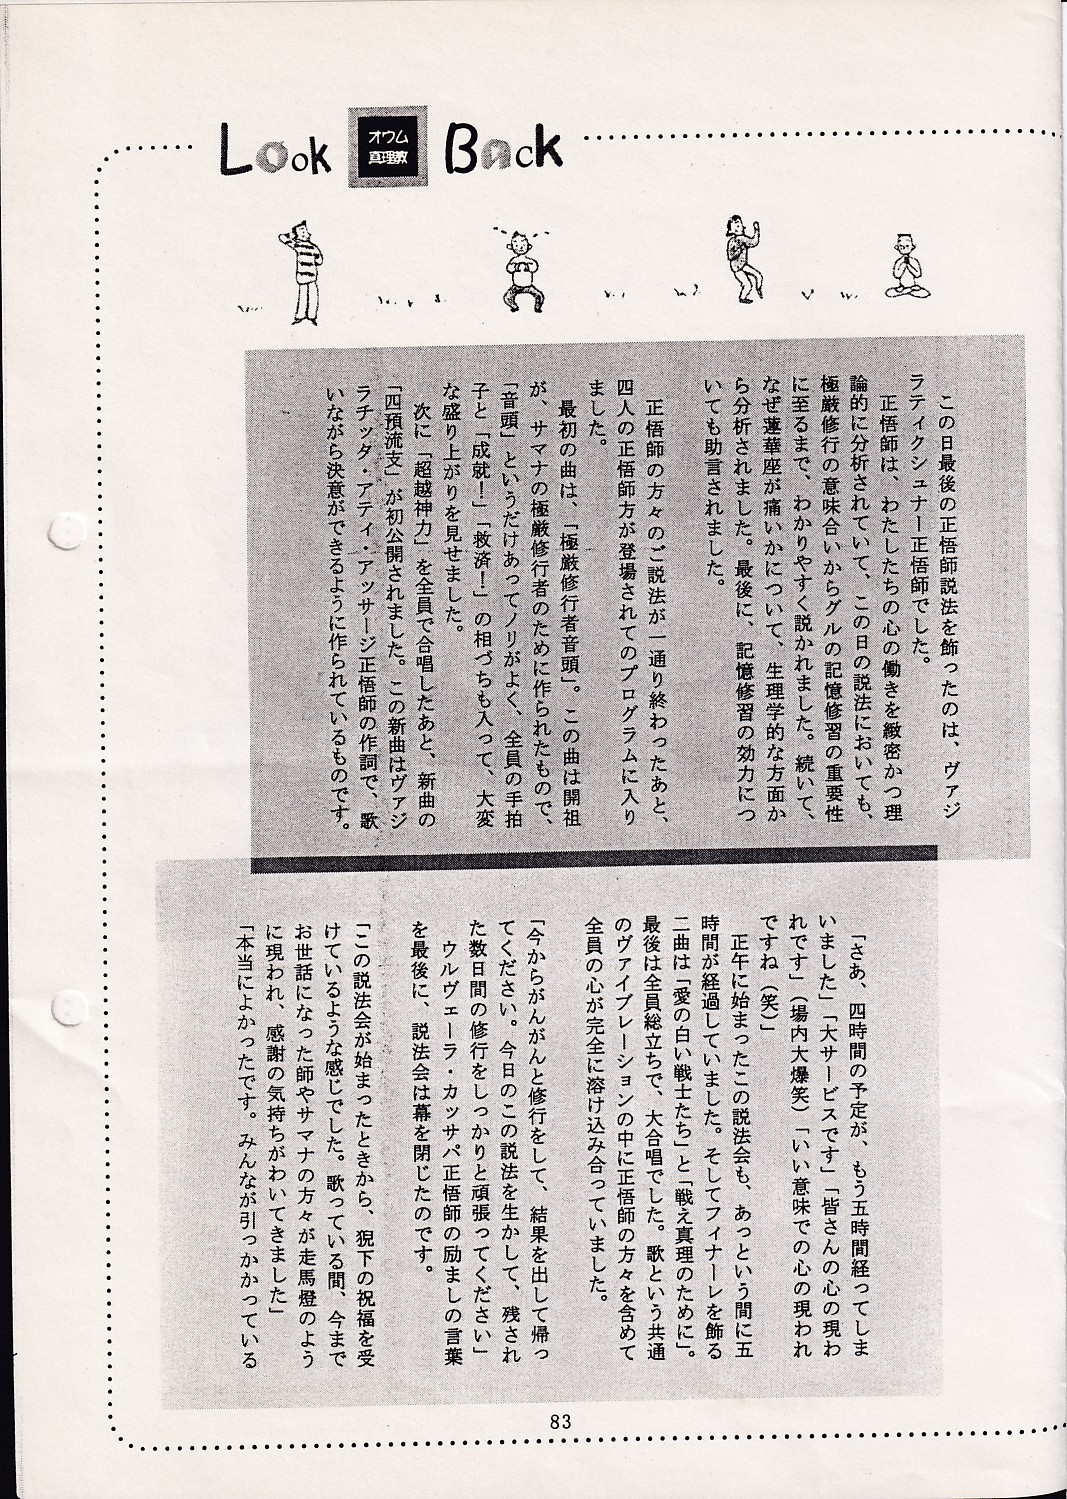 Look オウム真理教 Back
この日最後の正悟師説法を飾ったのは、ヴァジ
ラティクシュナー正悟師でした。
正悟師は、わたしたちの心の働きを緻密かつ理
論的に分析されていて、この日の説法においても、
極厳修行の意味合いからグルの記憶修習の重要性
に至るまで、わかりやすく説かれました。続いて、
なぜ蓮華座が痛いかについて、生理学的な方面か
ら分析されました。最後に、記憶修習の効力につ
いても助言されました。
正悟師の方々のご説法が一通り終わったあと、
四人の正悟師方が登場されてのプログラムに入り
ました。
最初の曲は、「極厳修行者音頭」。この曲は開祖
が、サマナの極厳修行者のために作られたもので、
「音頭」というだけあってノリがよく、全員の手拍
子と「成就！」「救済！」の相づちも入って、大変
な盛り上がりを見せました。
次に「超越神力」を全員で合唱したあと、新曲の
「四預流支」が初公開されました。この新曲はヴァジ
ラチッタ・アティ・アッサージ正悟師の作詞で、歌
いながら決意ができるように作られているものです。
「さあ、四時間の予定が、もう五時間経ってしま
いました」「大サービスです」「皆さんの心の現わ
れです」（場内大爆笑）「いい意味での心の現われ
ですね（笑）」
正午に始まったこの説法会も、あっという間に五
時間が経過していました。そしてフィナーレを飾る
二曲は「愛の白い戦士たち」と「戦え真理のために」。
最後は全員総立ちで、大合唱でした。歌という共通
のヴァイブレーションの中に正悟師の方々を含めて
全員の心が完全に溶け込み合っていました。
「今からがんがんと修行をして、結果を出して帰っ
てください。今日のこの説法を生かして、残され
た数日間の修行をしっかりと頑張ってください」
ウルヴェーラ・カッサパ正悟師の励ましの言葉
を最後に、説法会は幕を閉じたのです。
「この説法会が始まったときから、猊下の祝福を受
けているような感じでした。歌っている間、今まで
お世話になった師やサマナの方々が走馬燈のよう
に現われ、感謝の気持ちがわいてきました」
「本当によかったです。みんなが引っかかっている
83